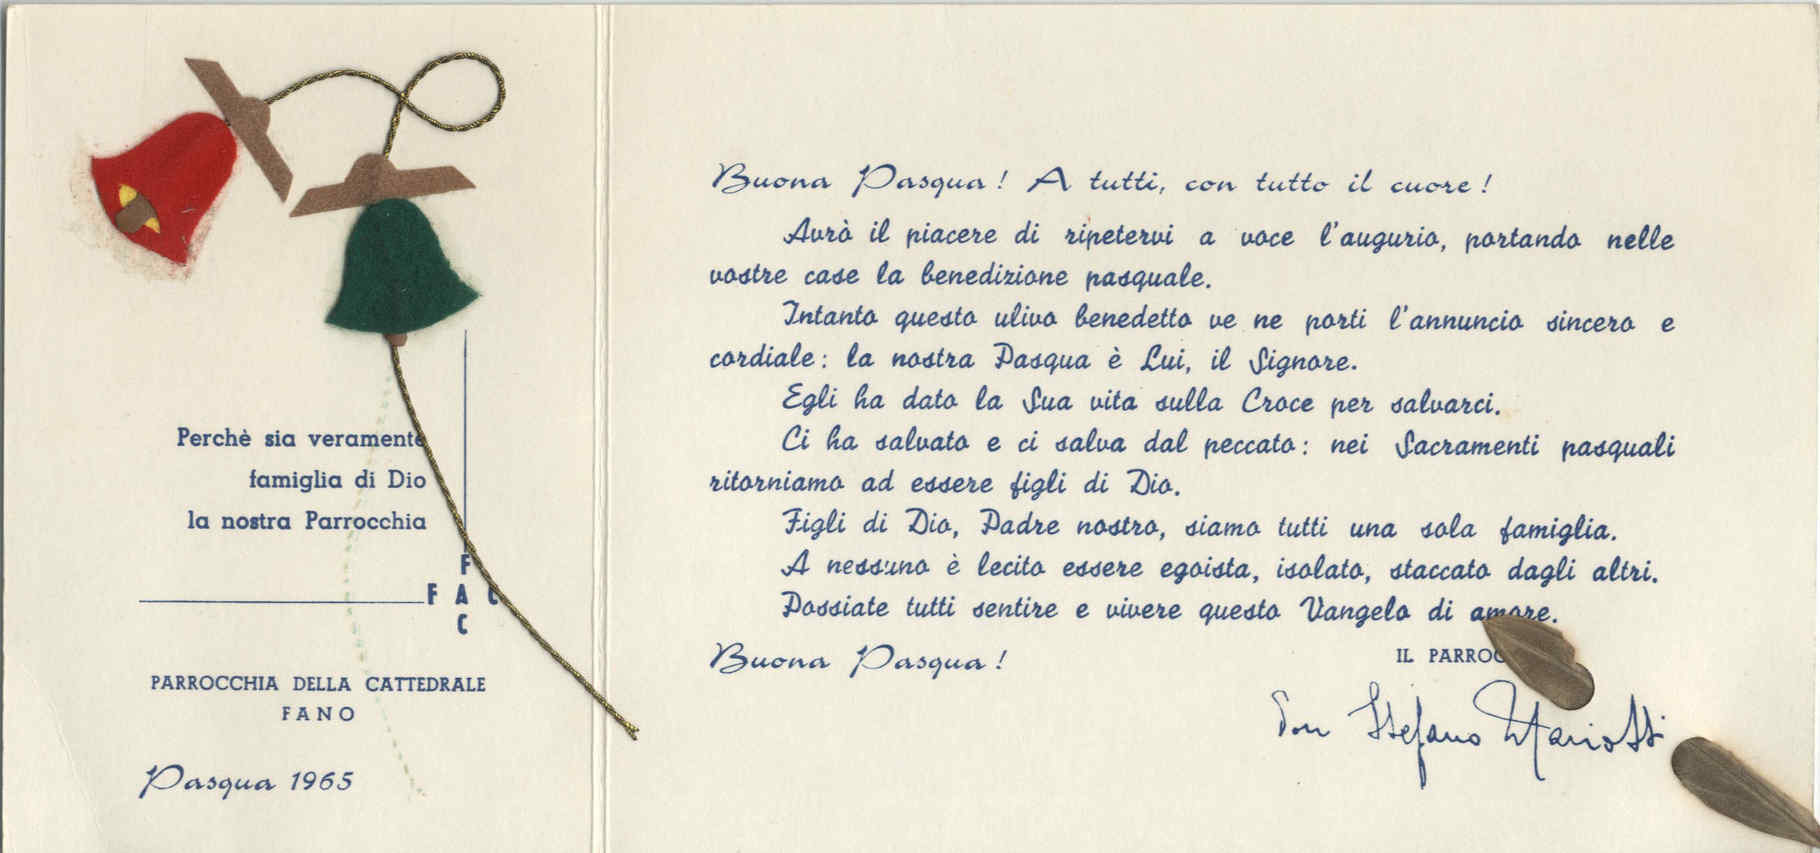 Perchè sia veramente
famiglia di Dio
la nostra Parrocchia
F
F A C
C
PARROCCHIA DELLA CATTEDRALE
FANO
Pasqua 1965
Buona Pasqua! A tutti, con tutto il cuore!
Avrò il piacere di ripetervi a voce l'augurio, portando nelle
vostre case la benedizione pasquale.
Intanto questo ulivo benedetto ve ne porti l'annuncio sincero e
cordiale: la nostra Pasqua è Lui, il Signore.
Egli ha dato la Sua vita sulla Croce per salvarci.
Ci ha salvato e ci salva dal peccato: nei Sacramenti pasquali
ritorniamo ad essere figli di Dio.
Figli di Dio, Padre nostro, siamo tutti una sola famiglia.
A nessuno è lecito essere egoista, isolato, staccato dagli altri.
Possiate tutti sentire e vivere questo Vangelo di amore.
Buona Pasqua!
IL PARROC
Don Stefano Mariotti